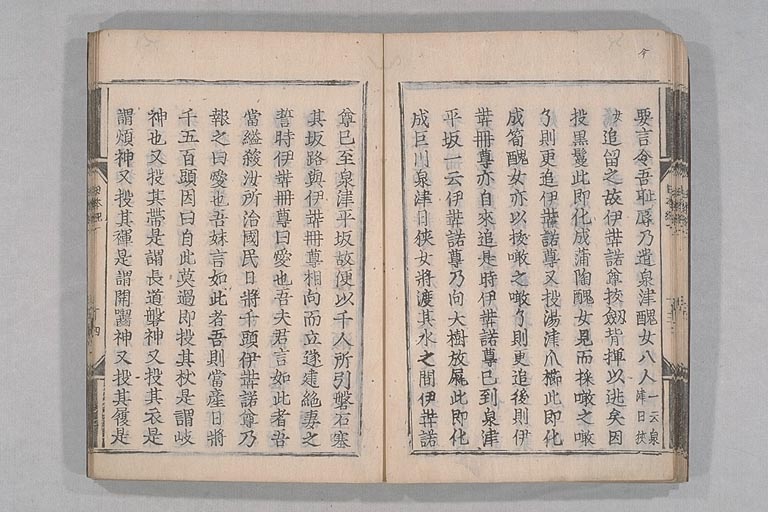 要言令吾恥辱乃遣泉津醜女八人一云泉津日狹
女追留之故伊弉諾尊拔劔背揮以逃矣因
投黒鬘此即化成蒲陶醜女見而採噉之噉
了則更追伊弉諾尊又投湯津爪櫛此即化
成筍醜女亦以拔噉之噉了則更追後則伊
弉冊尊亦自來追是時伊弉諾尊已到泉津
平坂一云伊弉諾尊乃向大樹放𡱁此即化
成巨川泉津日狹女將渡其水之間伊弉諾
尊已至泉津平坂故便以千人所引磐石塞
其坂路與伊弉冊尊相向而立遂建絶妻之
誓時伊弉冊尊曰愛也吾夫君言如此者吾
當縊殺汝所治國民日將千頭伊弉諾尊乃
報之曰愛也吾妹言如此者吾則當産日將
千五百頭因曰自此莫過即投其杖是謂岐
神也又投其帶是謂長道磐神又投其衣是
謂煩神又投其褌是謂開齧神又投其履是